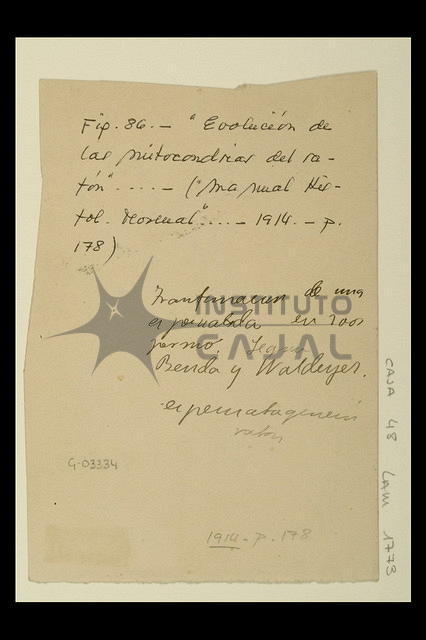 Fig. 86. — "Evolución de
las mitocondrias del ra-
tón"..... — ("Manual His-
tol. Normal"..... — 1914. — p.
178)
Transformación de una
espermatida en zoos
permo, Segun
Benda y Waldeyer.
espermatogenesis
raton
G-03334
1914 - p. 178
INSTITUTO
CAJAL
CAJA 48 LAM 1773